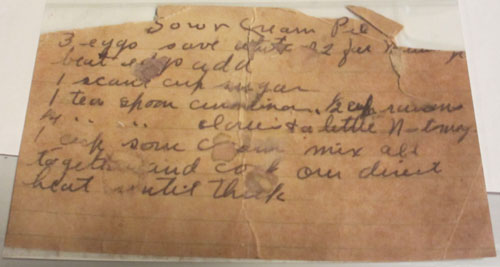 Sour Cream Pie
3 eggs save white 2 for
beat eggs add
1 scant cup sugar
1 tea spoon cinnamon, cup raisins
" " cloves & a little Nutmeg
1 cup sour cream mix all
together and cook over direct
heat until thick